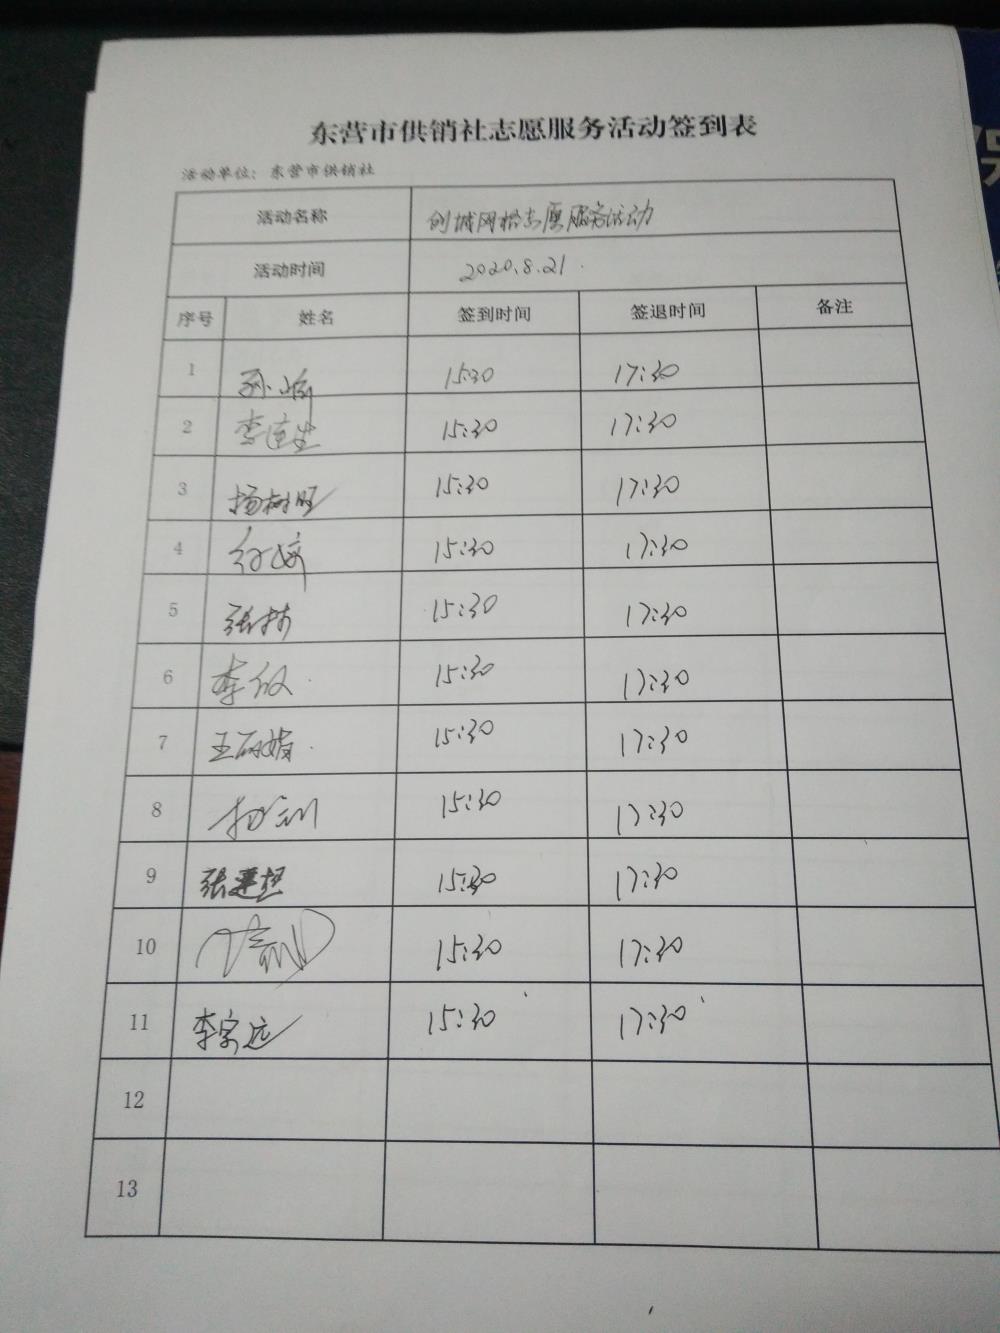 东营市供销社志愿服务活动签到表
活动单位：东营市供销社
活动名称 创城网格志愿服务活动
活动时间 2020.8.21
序号 姓名 签到时间 签退时间 备注
1 15:30 17:30
2 李连生 15:30 17:30
3 杨树旺 15:30 17:30
4 15:30 17:30
5 张林 15:30 17:30
6 15:30 17:30
7 王丽娟 15:30 17:30
8 15:30 17:30
9 张建恒 15:30 17:30
10 15:30 17:30
11 李宗远 15:30 17:30
12
13